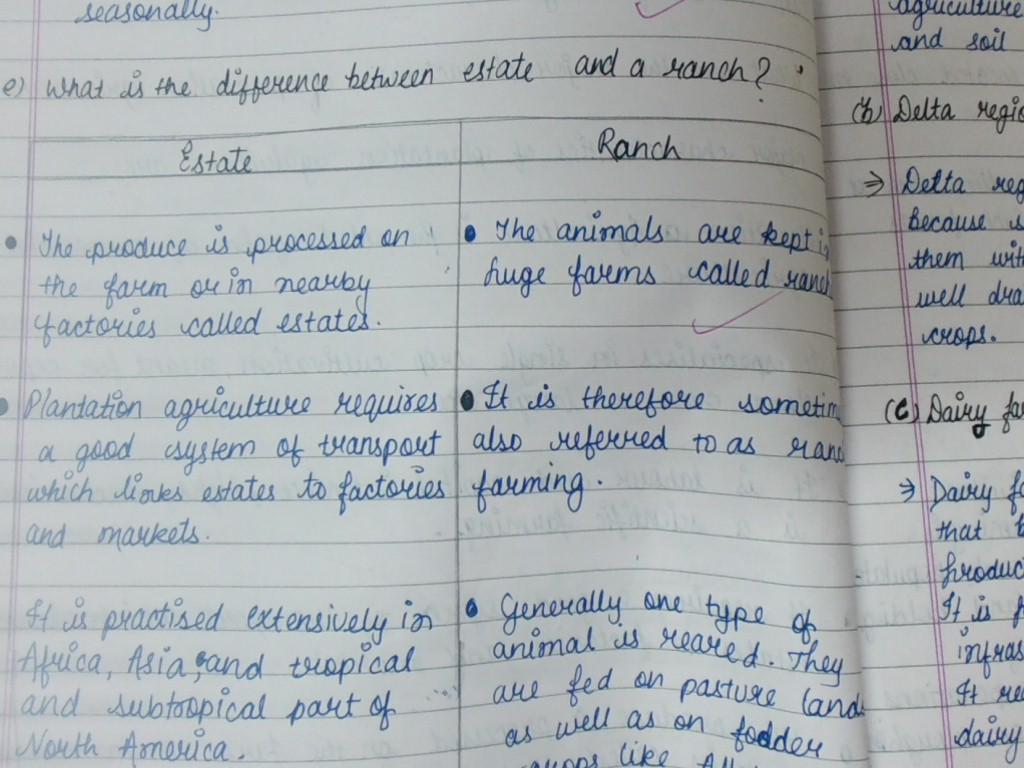 seasonally.
e) What is the difference between estate and a ranch?
Estate
• The produce is processed on
the farm or in nearby
factories called estates.
• Plantation agriculture requires
a good system of transport
which links estates to factories
and markets.
It is practised extensively in
Africa, Asia, and tropical
and subtropical part of
North America.
Ranch
• The animals are kept in
huge farms called ranch
• It is therefore sometim
also referred to as ranc
farming.
• Generally one type of
animal is reared. They
are fed on pasture lands
as well as on fodder
like
agriculture
and soil
(b) Delta regio
⇒ Delta reg
Because
them with
well dra
crops.
(c) Dairy fa
⇒ Dairy fa
that
produc
It is
infras
It re
dairy